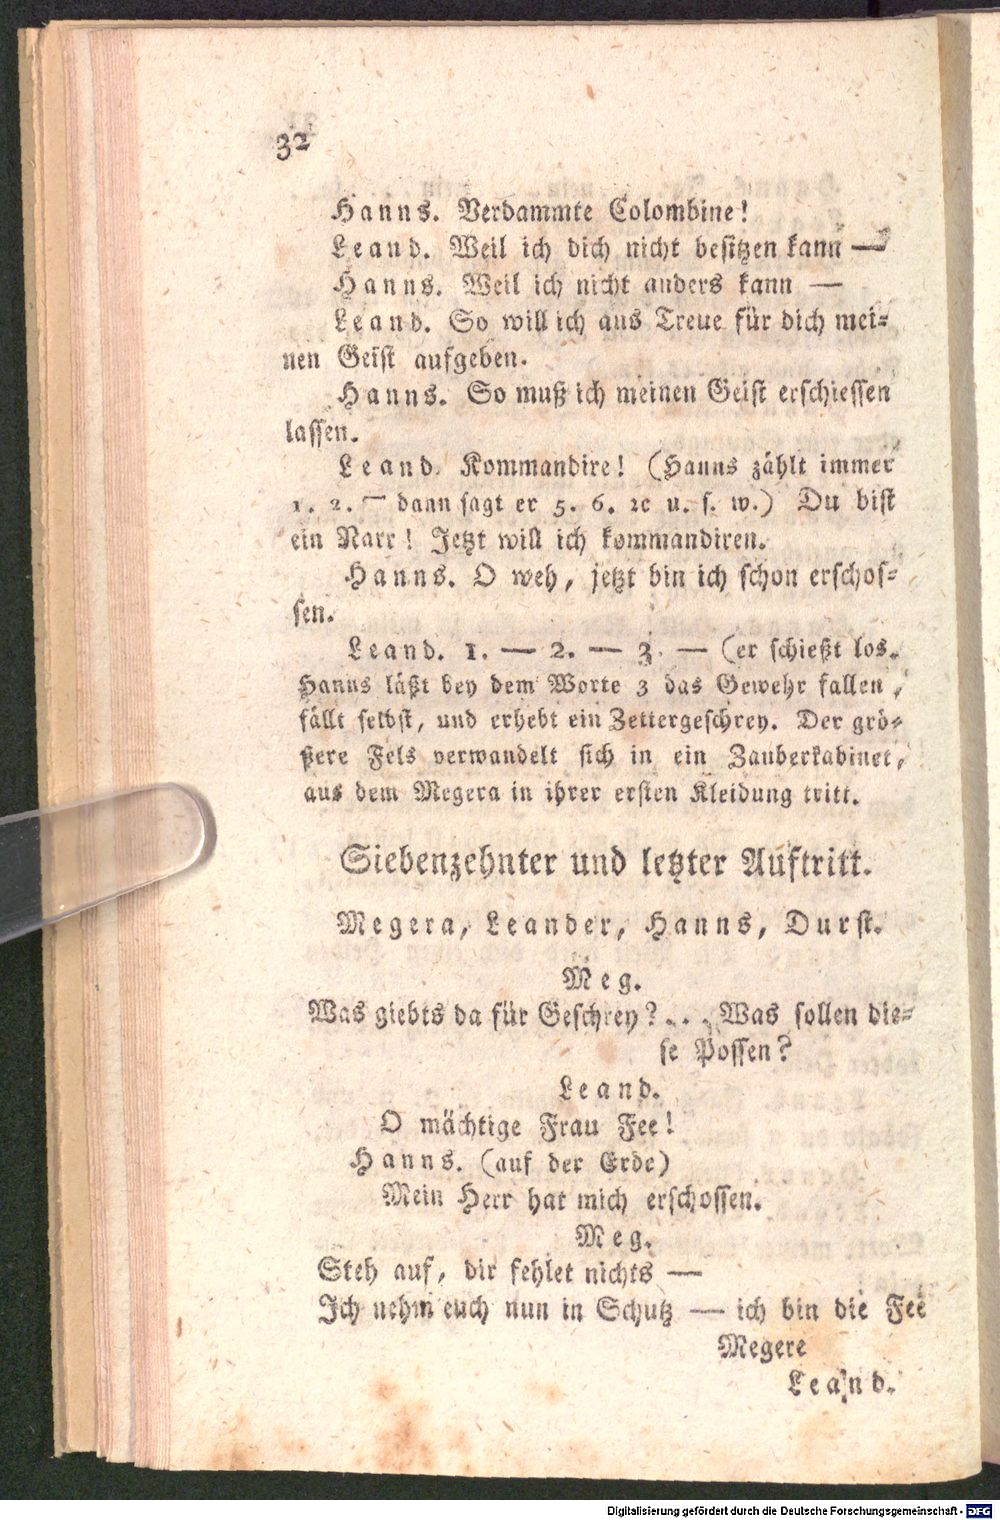 32
Hanns. Verdammte Colombine!
Leand. Weil ich dich nicht besitzen kann —
Hanns. Weil ich nicht anders kann —
Leand. So will ich aus Treue für dich mei=
nen Geist aufgeben.
Hanns. So muß ich meinen Geist erschiessen
lassen.
Leand. Kommandire! (Hanns zählt immer
1. 2. — dann sagt er 5. 6. ꝛc u. s. w.) Du bist
ein Narr! Jetzt will ich kommandiren.
Hanns. O weh, jetzt bin ich schon erschos=
sen.
Leand. 1. — 2. — 3. — (er schießt los.
Hanns läßt bey dem Worte 3 das Gewehr fallen,
fällt selbst, und erhebt ein Zettergeschrey. Der grö=
ßere Fels verwandelt sich in ein Zauberkabinet,
aus dem Megera in ihrer ersten Kleidung tritt.
Siebenzehnter und letzter Auftritt.
Megera, Leander, Hanns, Durst.
Meg.
Was giebts da für Geschrey? . . . Was sollen die=
se Possen?
Leand.
O mächtige Frau Fee!
Hanns. (auf der Erde)
Mein Herr hat mich erschossen.
Meg.
Steh auf, dir fehlet nichts —
Ich nehm euch nun in Schutz — ich bin die Fee
Megere
Leand.
Digitalisierung gefördert durch die Deutsche Forschungsgemeinschaft - DFG